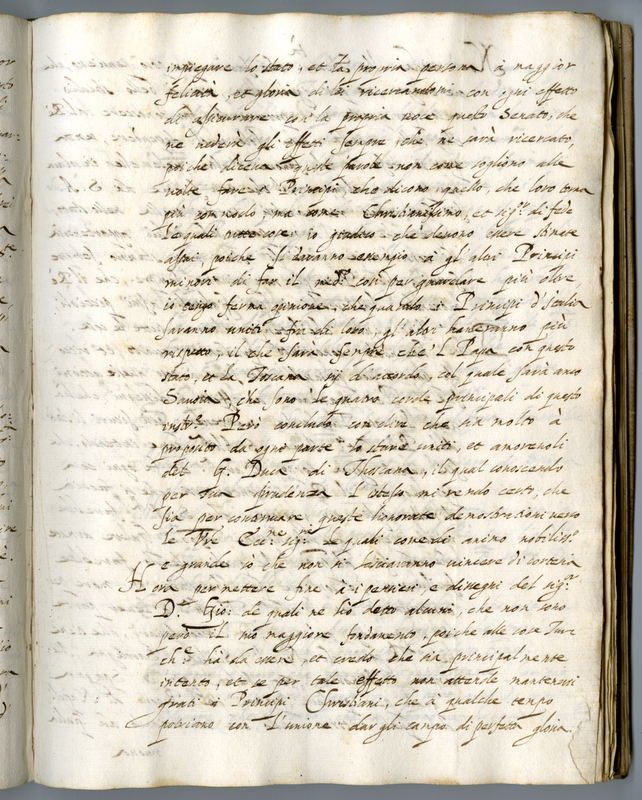 impiegare lo stato, et la propria persona à maggior
felicità, et gloria di lei ricercandomi con ogni effetto
di assicurare con la propria voce questo Senato, che
ne vederà gli effetti sempre che ne sarà ricercato,
poiche diceva queste parole non come sogliono alle
volte fare i Principi che dicono quello, che loro torna
più commodo, ma come Christianissimo, et sig.r di fede
le quali tutte cose io giudico che devono essere stimate
assai, poiche si daranno essempio à gli altri Principi
minori di far il med.o con per guardare più oltre
io tengo ferma opinione, che quando i Principi d'Italia
saranno uniti frà di loro gl'altri haveranno più
rispetto, il che sarà sempre che 'l Papa con questo
stato, et la Toscana sij d'acordo, col quale sarà anco
Savoia, che sono le quatro corde principali di questo
instr.o Però concludo con dire che hà molto à
proposito da ogni parte lo star uniti, et amorevoli
del G. Duca di Thoscana, il qual conoscendo
per sua prudenza l'istesso mi rendo certo, che
sia per continuare queste honorate demostrationi verso
le VVre Ecc.me sig.rie le quali come di animo nobiliss.o
e grande sò che non si lasciaranno vincere di cortesia
Hora per mettere fine à i pensieri, e dissegni del sig.r
D. Gio: de quali ne hò detto alcuni, che non sono
però il suo maggiore fondamento, poiche alle cose Tur
ch.e hà da essere, et credo che hà principalmente
intento, et se per tale effetto non attende mantenersi
grati i Principi Christiani, che à qualche tempo
potriano con l'unione dargli campo di perfetta gloria.